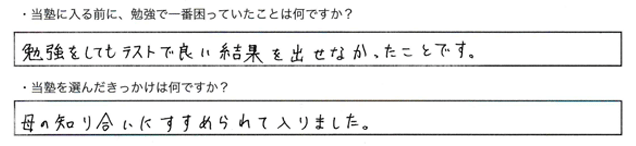 ・当塾に入る前に、勉強で一番困っていたことは何ですか？
勉強をしてもテストで良い結果を出せなかったことです。
・当塾を選んだきっかけは何ですか？
母の知り合いにすすめられて入りました。